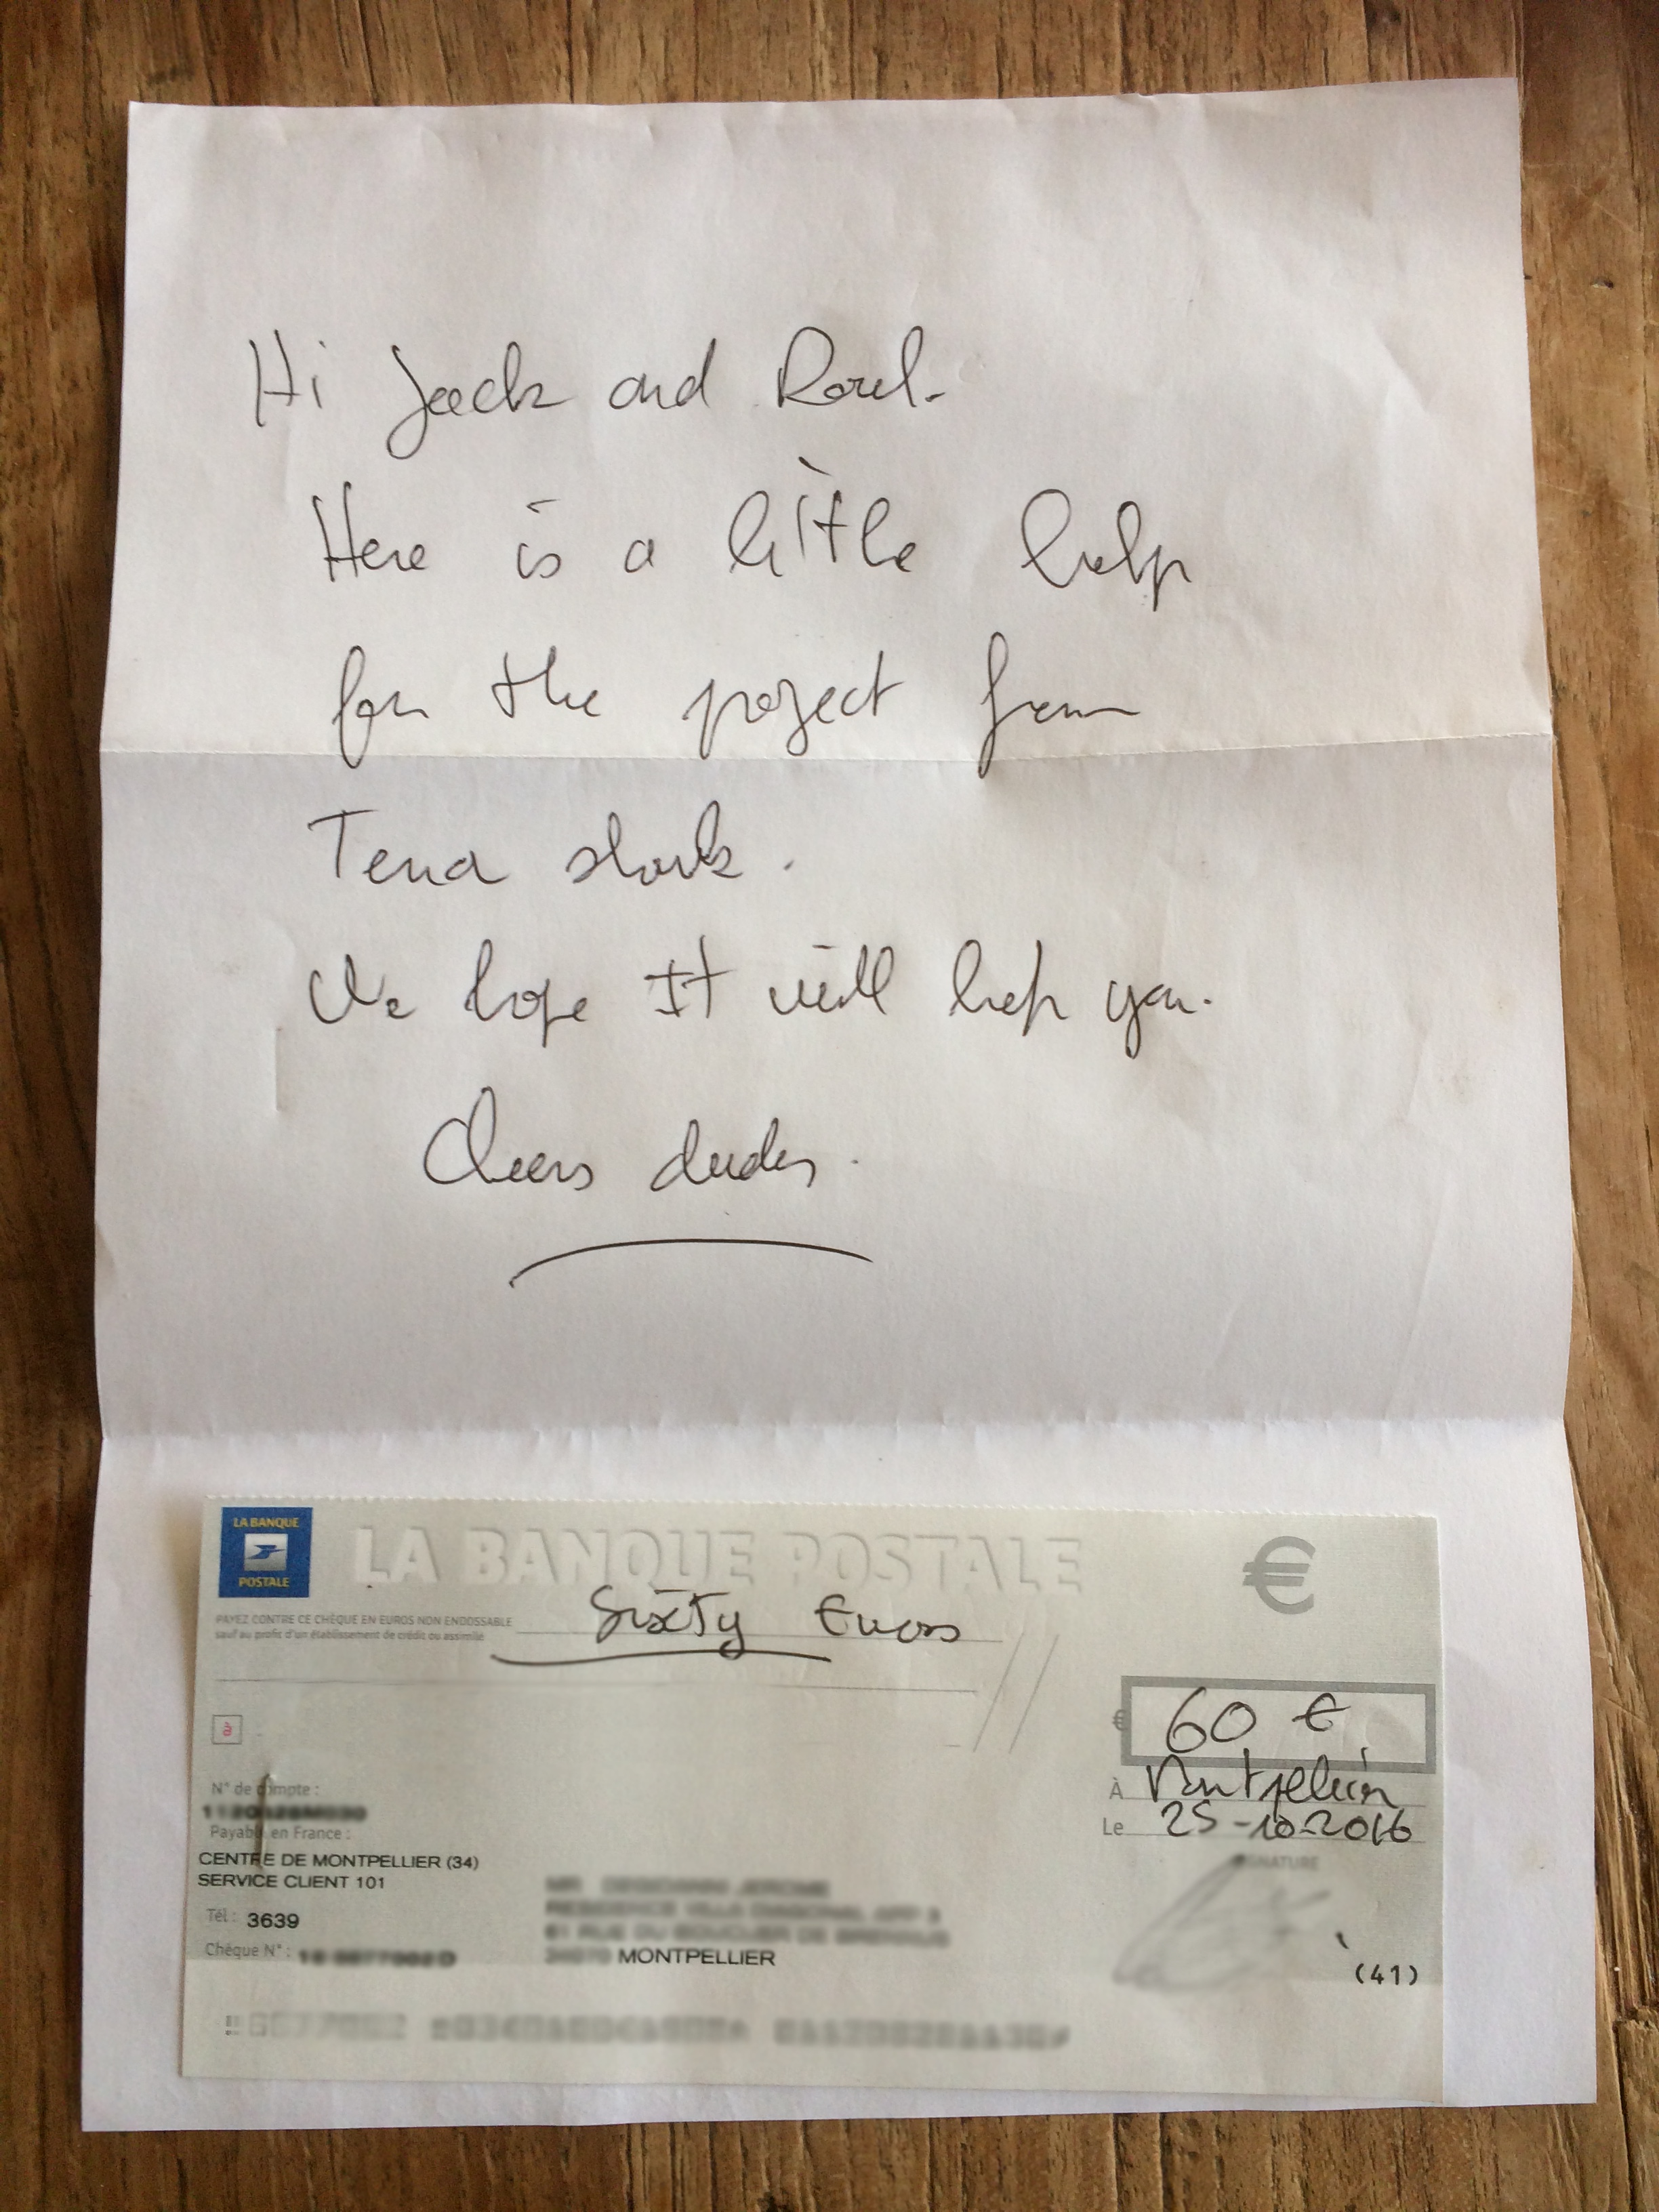 Hi Jack and Roul.
Here is a little help
for the project from
Tena shark.
We hope It will help you.
Cheers dudes.
LA BANQUE
POSTALE
LA BANQUE POSTALE
€
PAYEZ CONTRE CE CHÈQUE EN EUROS NON ENDOSSABLE
sauf au profit d'un établissement de crédit ou assimilé
Sixty Euros
€ 60 €
à
À Montpellier
Le 25-10-2016
N° de compte :
Payable en France :
CENTRE DE MONTPELLIER (34)
SERVICE CLIENT 101
SIGNATURE
Tél : 3639
Chèque N° :
MONTPELLIER
(41)